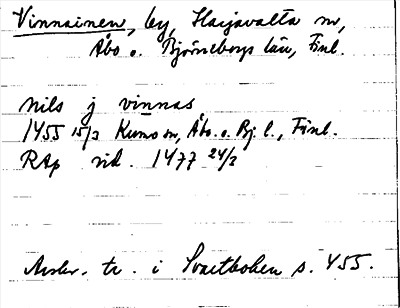 Vinnainen, by, Harjavalta sn,
Åbo o. Björneborgs län, Finl.
nils j vinnas
1455 15/3 Kumo sn, Åbo. o. Bj. l., Finl.
RAp vid. 1477 24/2
Avskr. tr. i Svartboken s. 455.